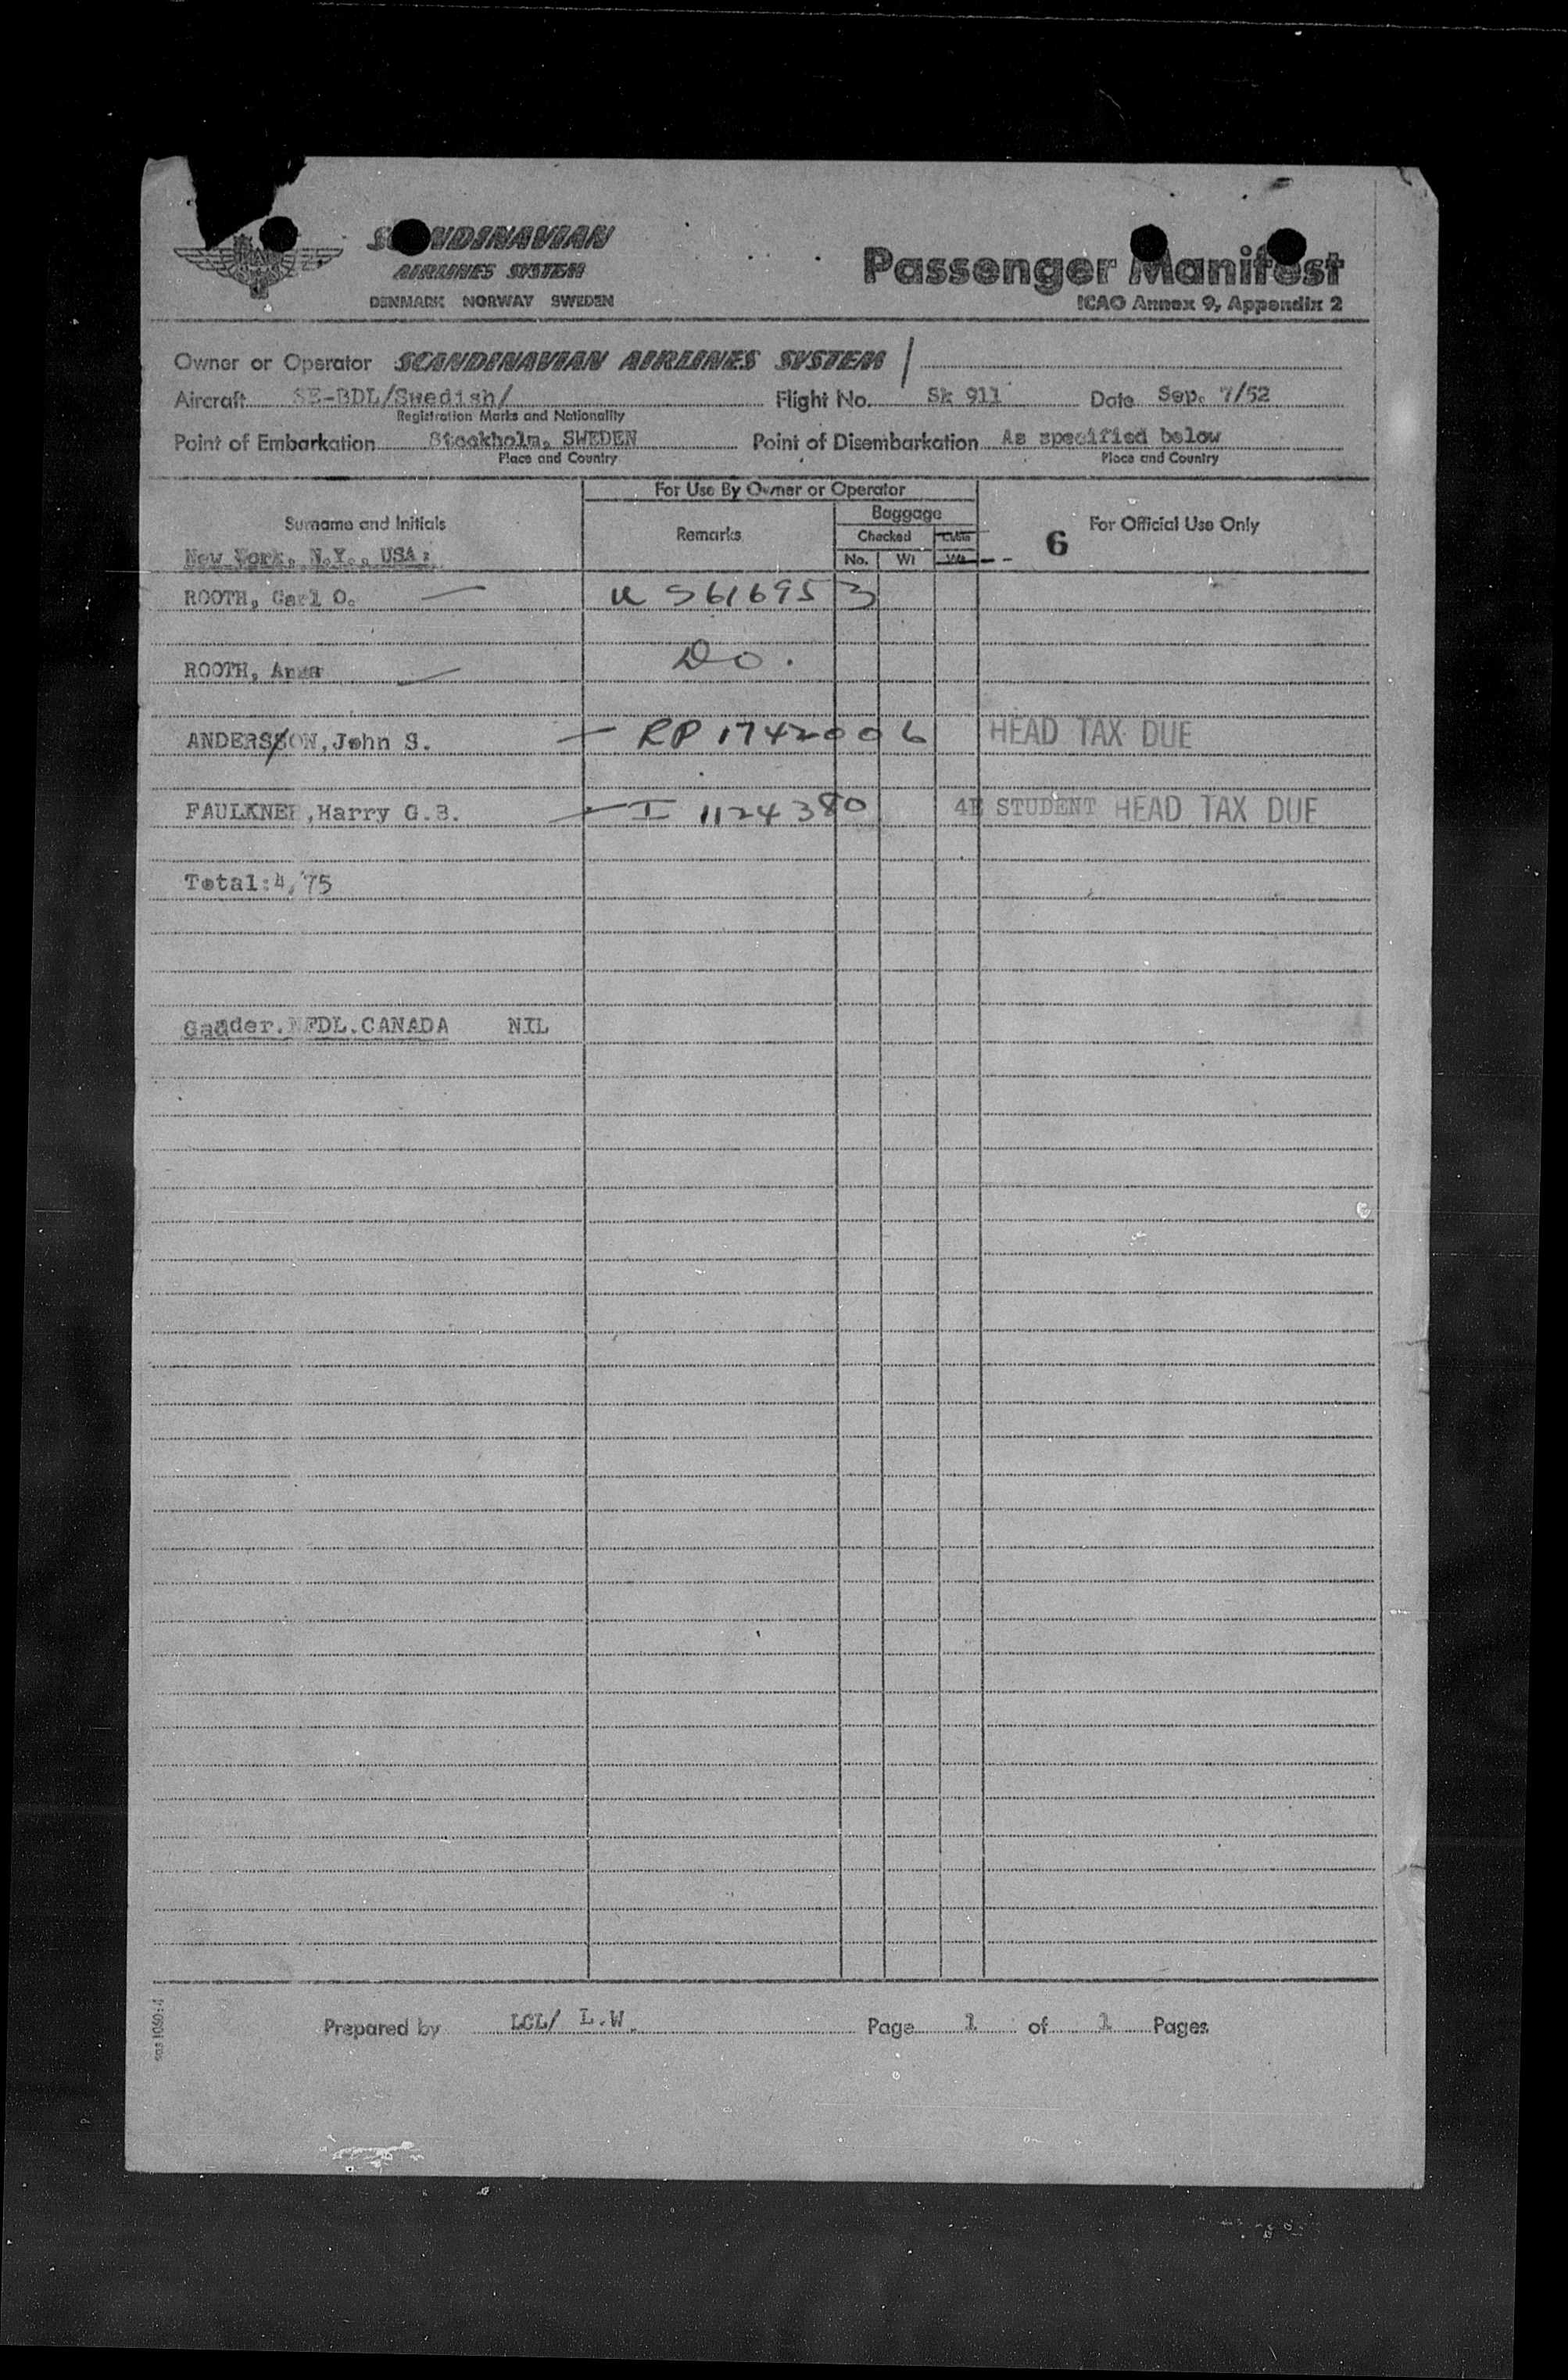 SCANDINAVIAN
AIRLINES SYSTEM
DENMARK NORWAY SWEDEN
Passenger Manifest
ICAO Annex 9, Appendix 2
Owner or Operator SCANDINAVIAN AIRLINES SYSTEM /
Aircraft SE-BDL/Swedish/ Flight No. Sk 911 Date Sep. 7/52
Registration Marks and Nationality
Point of Embarkation Stockholm, SWEDEN Point of Disembarkation As specified below
Place and Country Place and Country
For Use By Owner or Operator
Surname and Initials Remarks Baggage 6 For Official Use Only
Checked Cabin
No. Wt Wt
New York, N.Y., USA:
ROOTH, Carl O. — U S616953
ROOTH, Anna — Do.
ANDERSSON,John S. — RP 1742006 HEAD TAX DUE
FAULKNER,Harry G.B. — I 1124380 4E STUDENT HEAD TAX DUE
Total:4/75
Gander.NFDL.CANADA NIL
Prepared by LGL/ L.W. Page 1 of 1 Pages
sas 1050:4